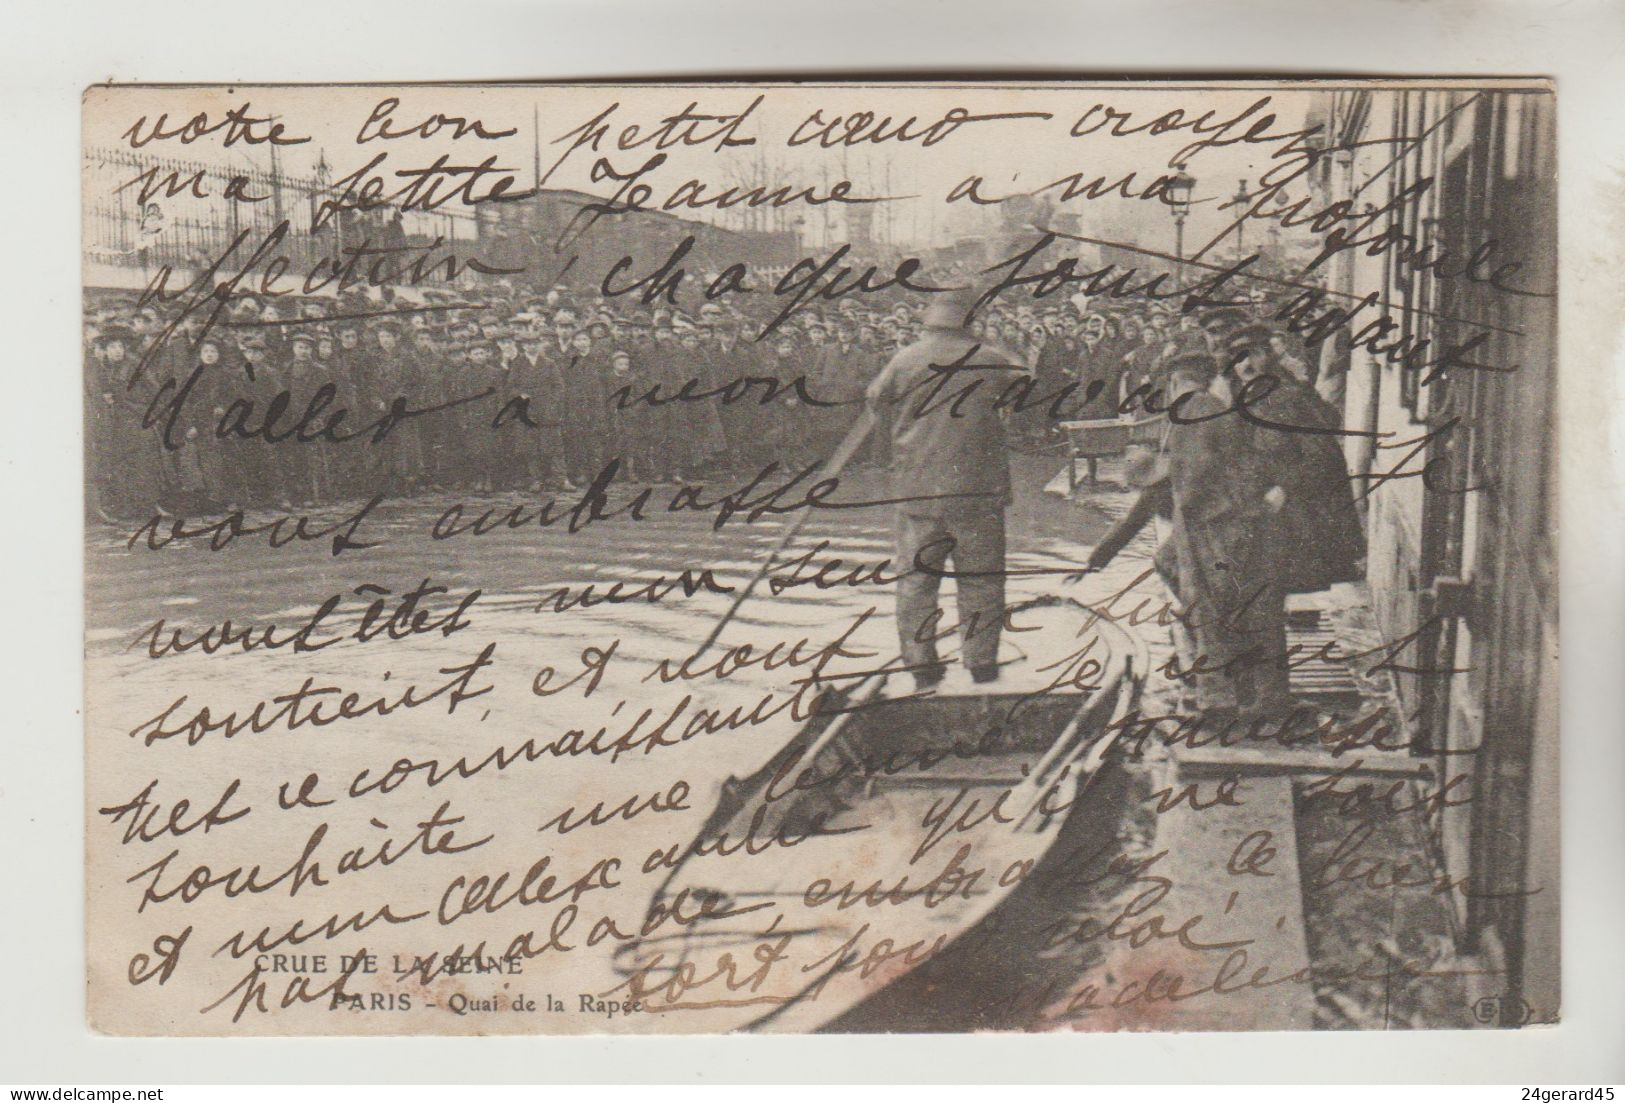 votre bon petit cœur croyez
ma petite Jeanne à ma profonde
affection, chaque jours avant
d'aller à mon travail je
vous embrasse
vous êtes mon seul
soutient, et vous en suis
très reconnaissante je vous
souhaite une bonne traversée
et mon Alexandre qu'il ne soit
pas malade, embrasses le bien
fort pour moi.
Madeleine
CRUE DE LA SEINE
PARIS - Quai de la Rapée
24gerard45